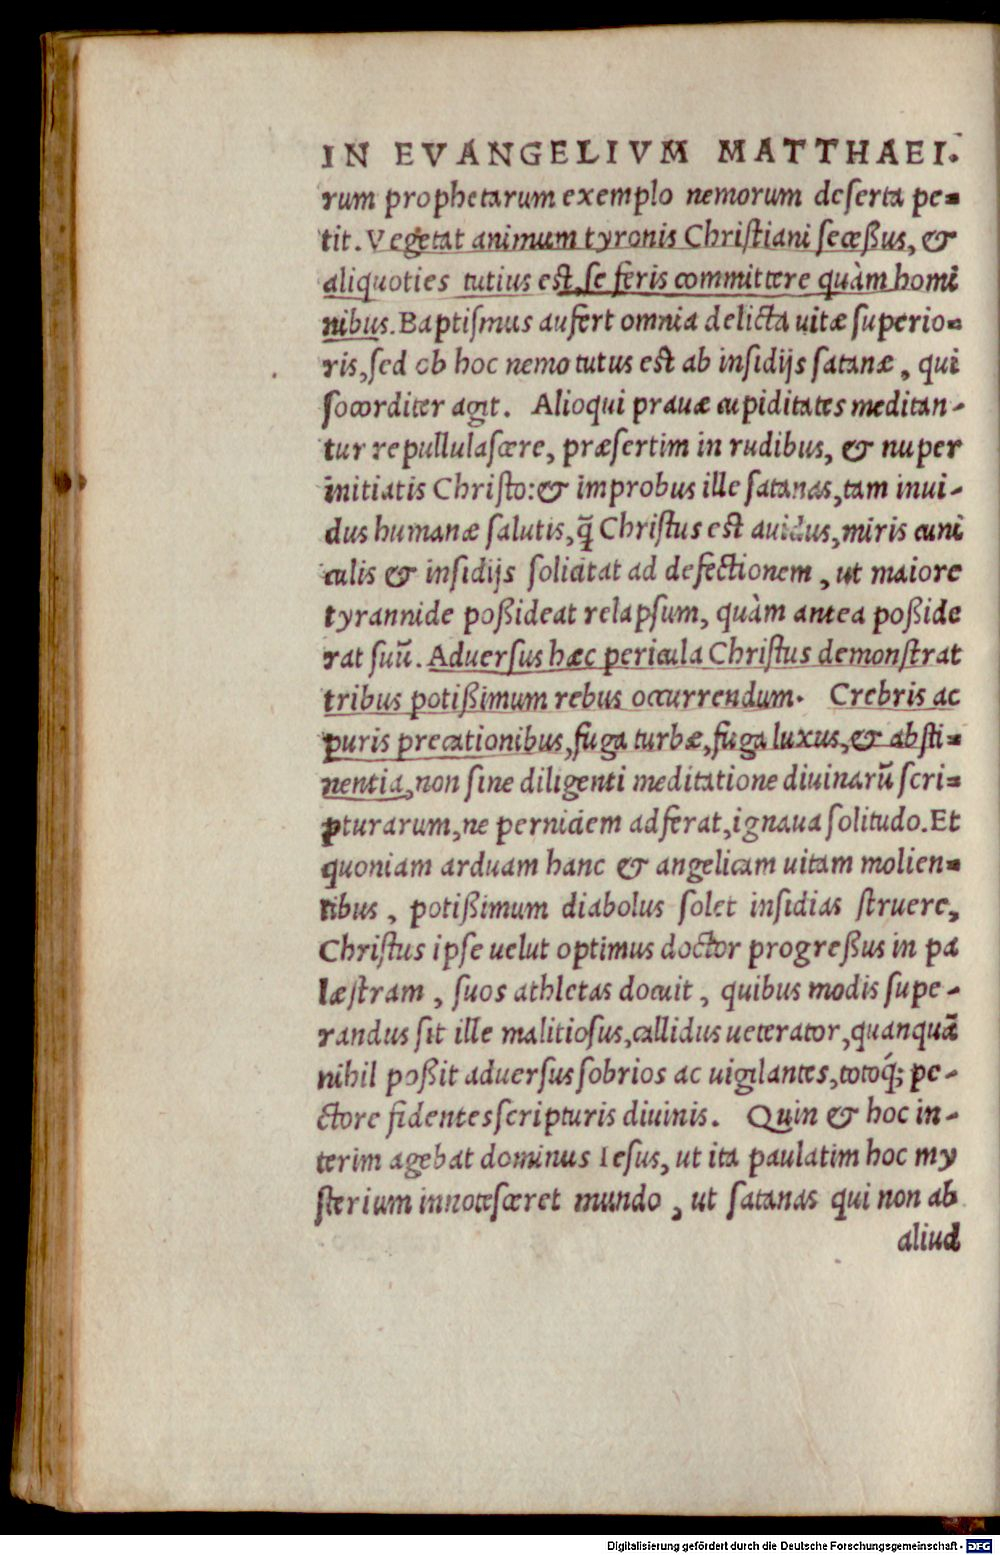 IN EVANGELIVM MATTHAEI.
rum prophetarum exemplo nemorum deſerta pe=
tit. Vegetat animum tyronis Chriſtiani ſeceßus, &
aliquoties tutius eſt, ſe feris committere quàm homi
nibus. Baptiſmus aufert omnia delicta uitæ ſuperio=
ris, ſed ob hoc nemo tutus eſt ab inſidijs ſatanæ, qui
ſocorditer agit. Alioqui prauæ cupiditates meditan-
tur repullulaſcere, præſertim in rudibus, & nuper
initiatis Chriſto: & improbus ille ſatanas, tam inui-
dus humanæ ſalutis, q̃ Chriſtus eſt auidus, miris cuni
culis & inſidijs ſolicitat ad defectionem, ut maiore
tyrannide poßideat relapſum, quàm antea poßide
rat ſuũ. Aduerſus hæc pericula Chriſtus demonſtrat
tribus potißimum rebus occurrendum. Crebris ac
puris precationibus, fuga turbæ, fuga luxus, & abſti=
nentia, non ſine diligenti meditatione diuinarũ ſcri=
pturarum, ne perniciem adferat, ignaua ſolitudo. Et
quoniam arduam hanc & angelicam uitam molien=
tibus, potißimum diabolus ſolet inſidias ſtruere,
Chriſtus ipſe uelut optimus doctor progreßus in pa
læſtram, ſuos athletas docuit, quibus modis ſupe-
randus ſit ille malitioſus, callidus ueterator, quanquã
nihil poßit aduerſus ſobrios ac uigilantes, totoq́; pe-
ctore fidentes ſcripturis diuinis. Quin & hoc in-
terim agebat dominus Ieſus, ut ita paulatim hoc my
ſterium innoteſceret mundo, ut ſatanas qui non ab
aliud
Digitalisierung gefördert durch die Deutsche Forschungsgemeinschaft - DFG